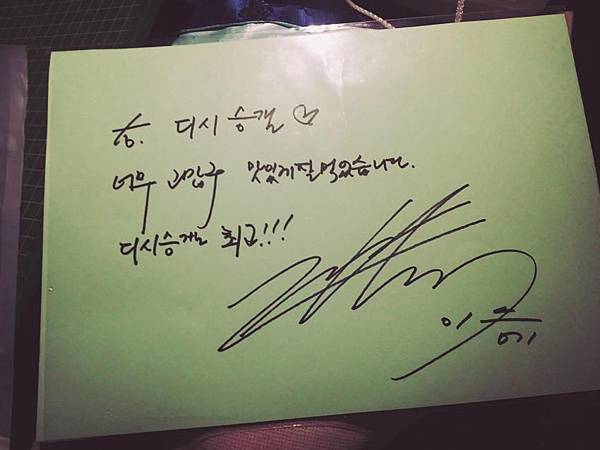 to. 디시 승갤 ♡
너무 고맙구 맛있게 잘 먹었습니다.
디시승갤 최고!!!